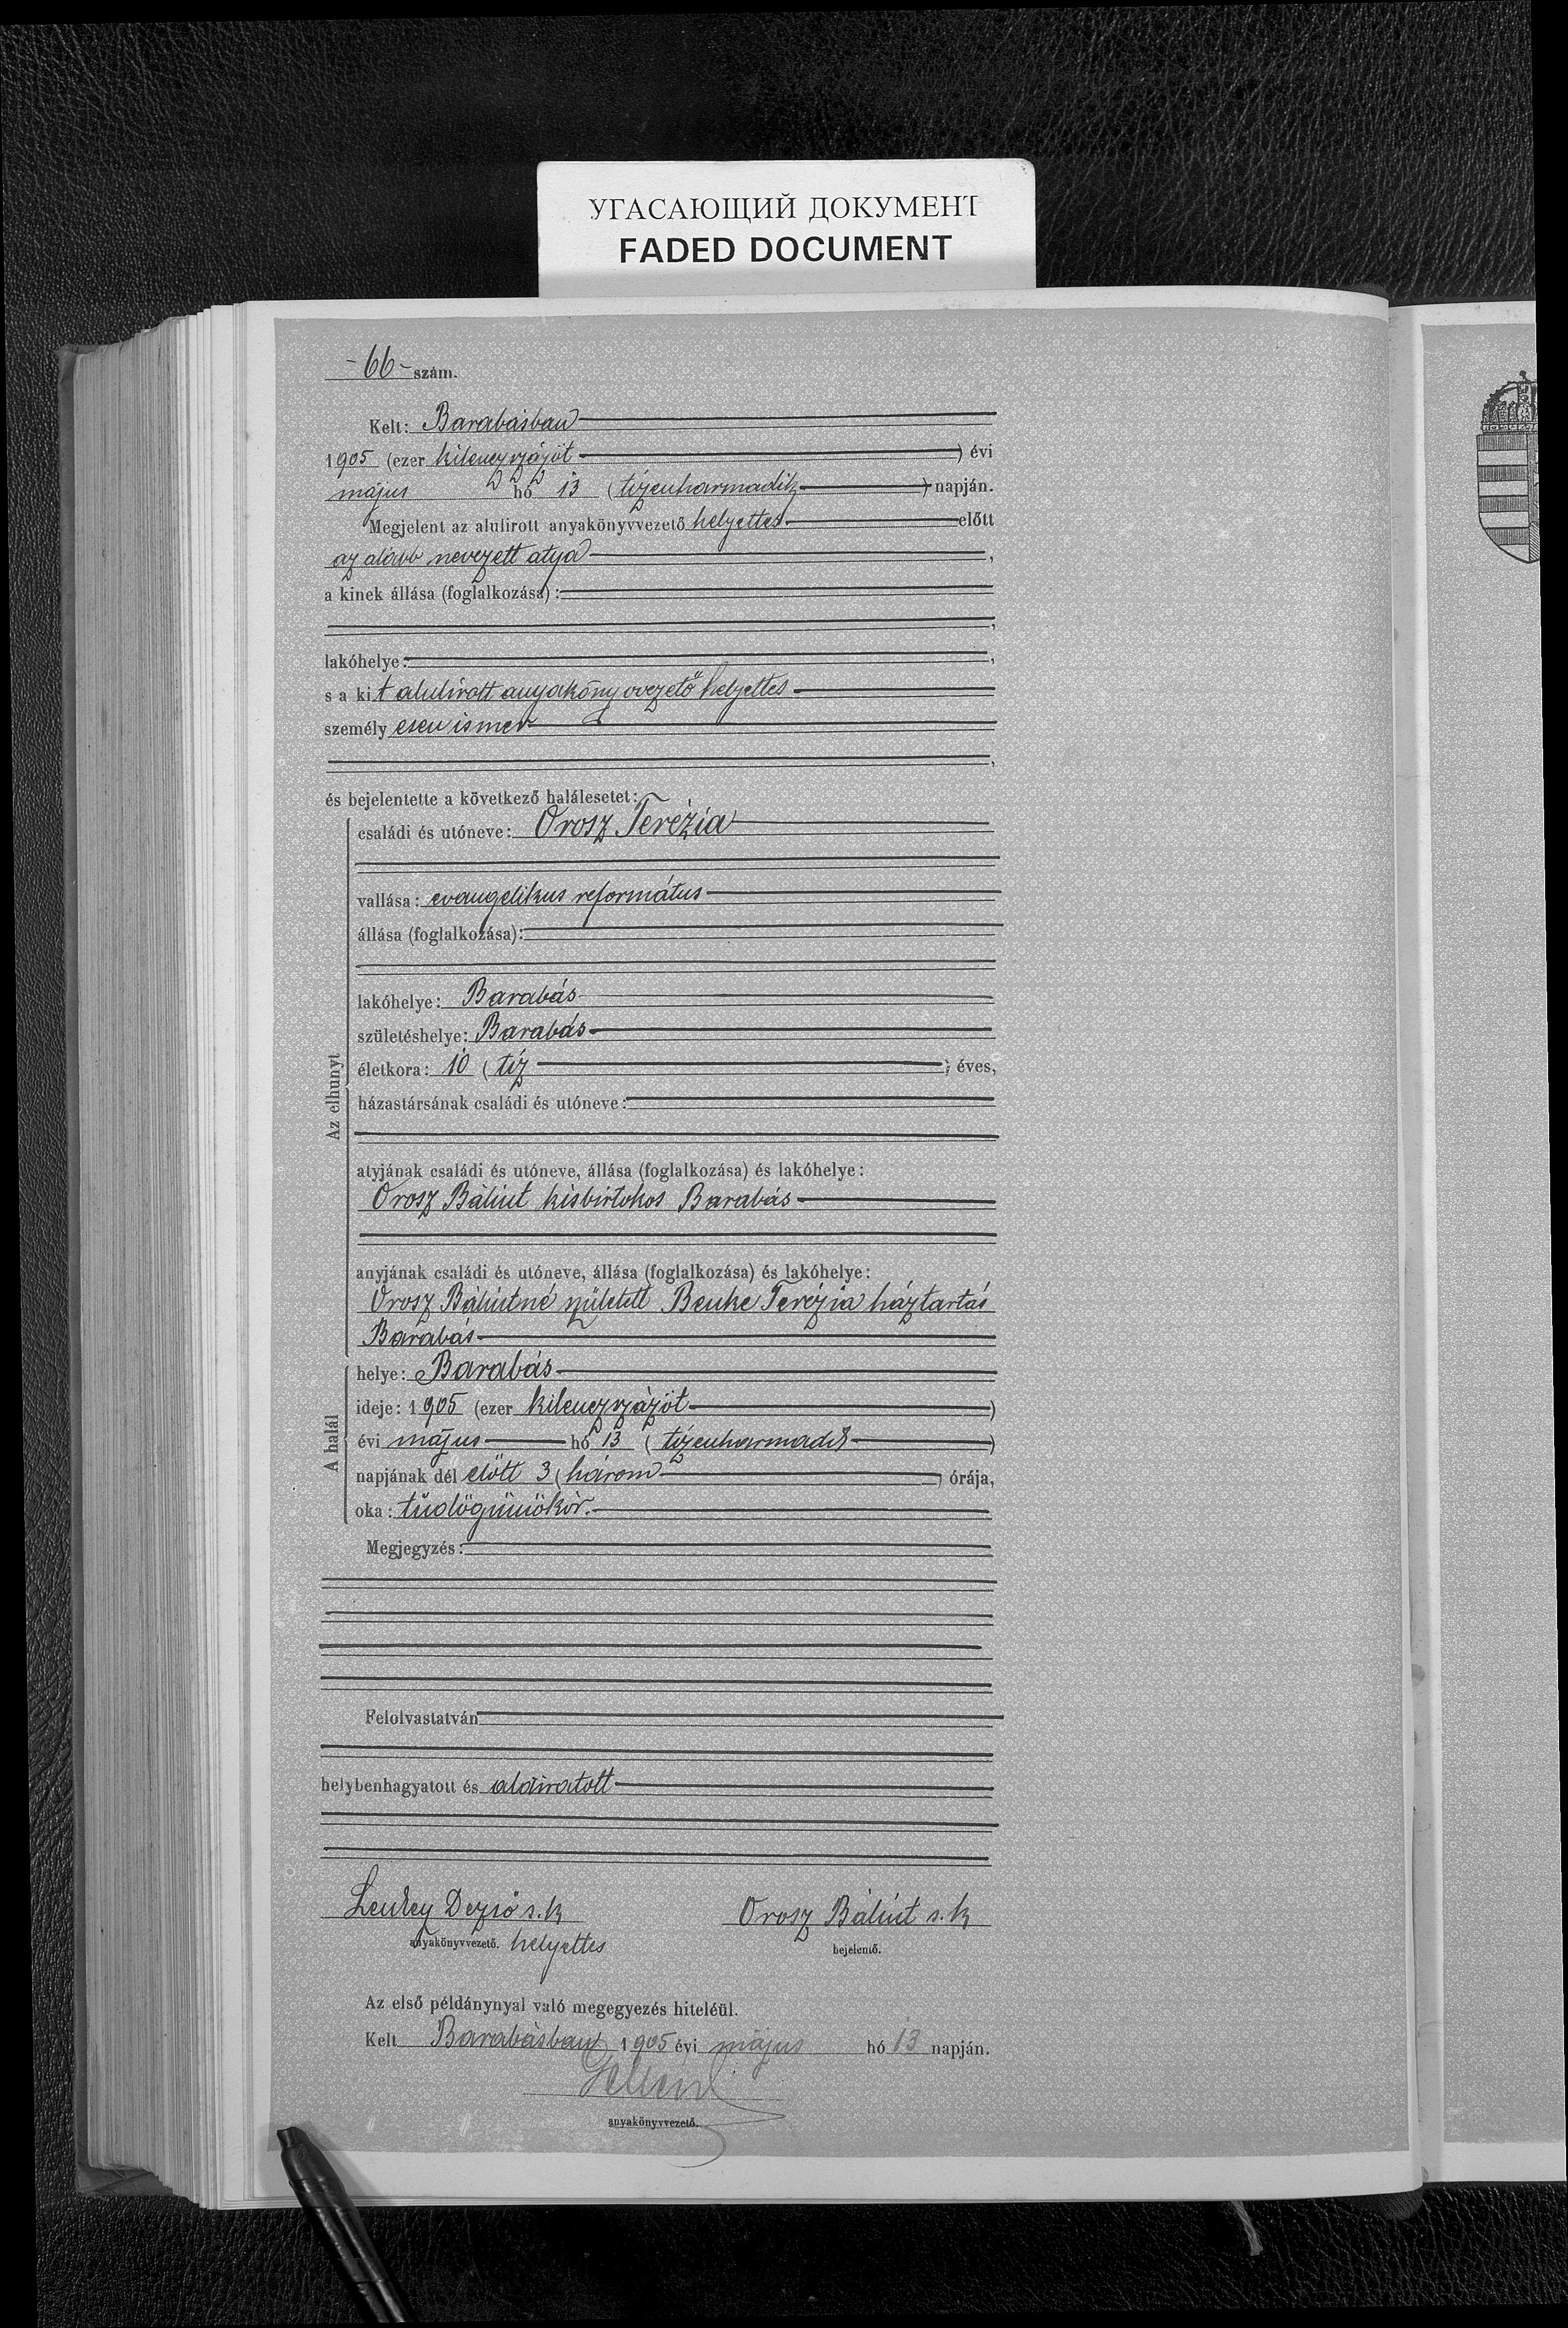 УГАСАЮЩИЙ ДОКУМЕНТ
FADED DOCUMENT
-66- szám.
Kelt: Barabásban
1905 (ezer kilenczszázöt) évi
május hó 13 (tizenharmadik) napján.
Megjelent az alulirott anyakönyvvezető helyettes előtt
az alább nevezett atya,
a kinek állása (foglalkozása):
,
lakóhelye:,
s a kit alulirott anyakönyvvezető helyettes
személyesen ismer
,
és bejelentette a következő halálesetet:
Az elhunyt
családi és utóneve: Orosz Terézia
vallása: evangelikus református
állása (foglalkozása):
lakóhelye: Barabás
születéshelye: Barabás
életkora: 10 (tíz) éves,
házastársának családi és utóneve:
atyjának családi és utóneve, állása (foglalkozása) és lakóhelye:
Orosz Bálint kisbirtokos Barabás
anyjának családi és utóneve, állása (foglalkozása) és lakóhelye:
Orosz Bálintné született Benke Terézia háztartás
Barabás
A halál
helye: Barabás
ideje: 1905 (ezer kilenczszázöt)
évi május hó 13 (tizenharmadik)
napjának dél előtt 3 (három) órája,
oka: tüdőgümőkór.
Megjegyzés:
Felolvastatván
helybenhagyatott és aláiratott
Dezső s. k Orosz Bálint s. k
anyakönyvvezető. helyettes bejelentő.
Az első példánynyal való megegyezés hiteléül.
Kelt Barabásban 1905 évi május hó 13 napján.
anyakönyvvezető.